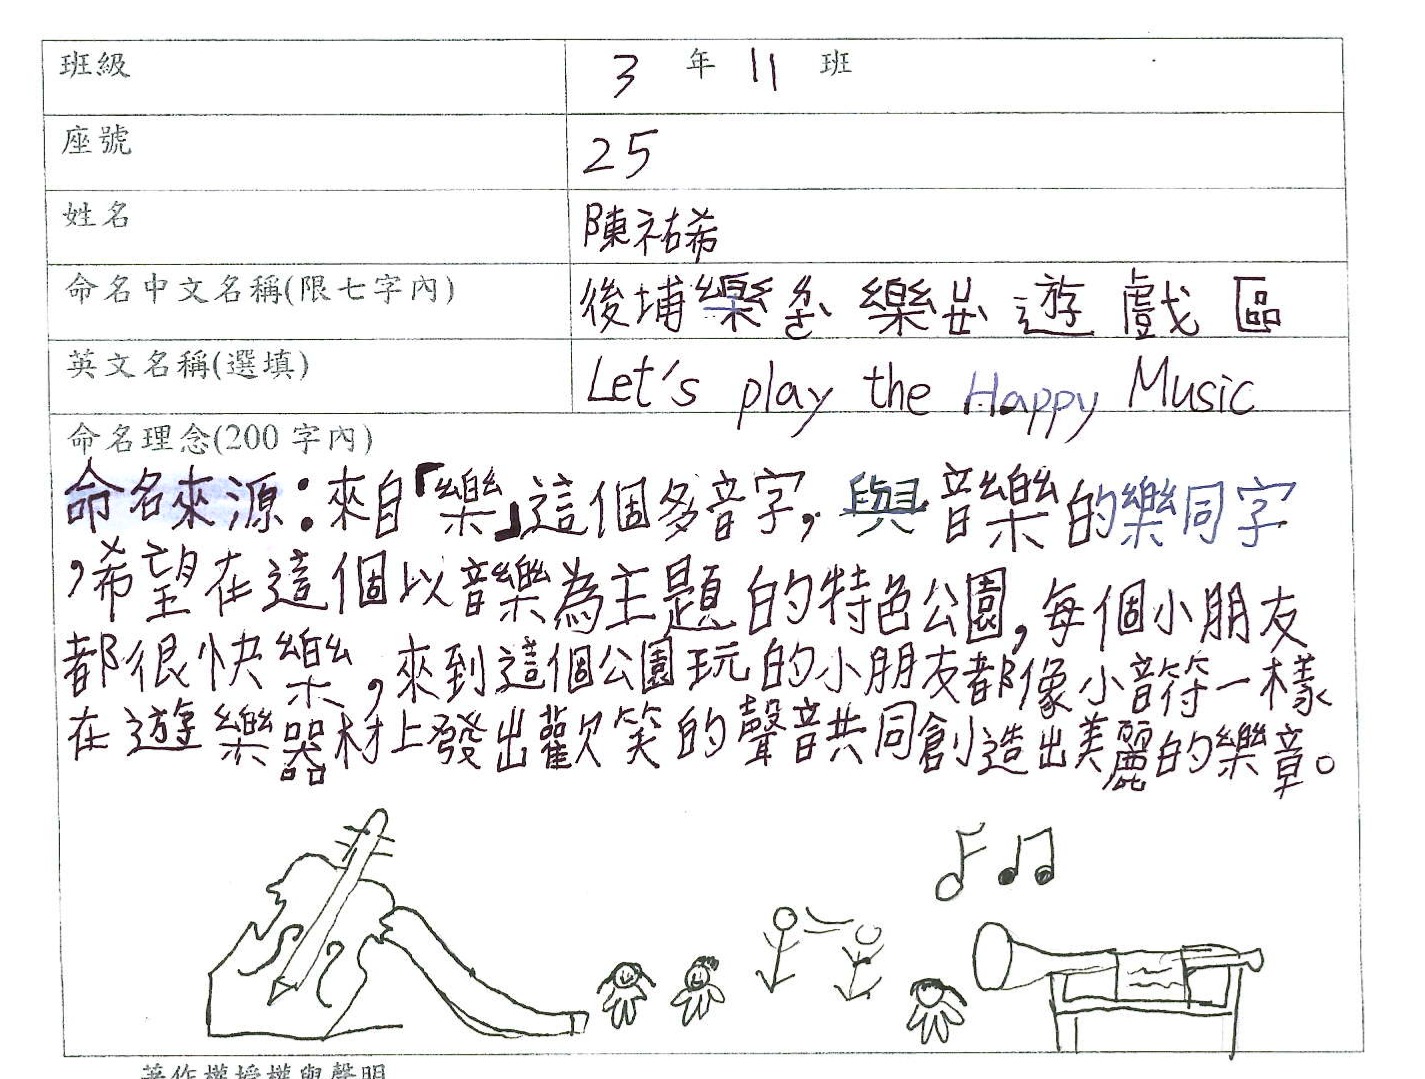 班級 3 年 11 班
座號 25
姓名 陳祐希
命名中文名稱(限七字內) 後埔樂ㄠˋ樂ㄓ遊戲區
英文名稱(選填) Let's play the Happy Music
命名理念(200字內)
命名來源：來自「樂」這個多音字，與音樂的樂同字
，希望在這個以音樂為主題的特色公園，每個小朋友
都很快樂，來到這個公園玩的小朋友都像小音符一樣
在遊樂器材上發出歡笑的聲音共同創造出美麗的樂章。
著作權授權與聲明